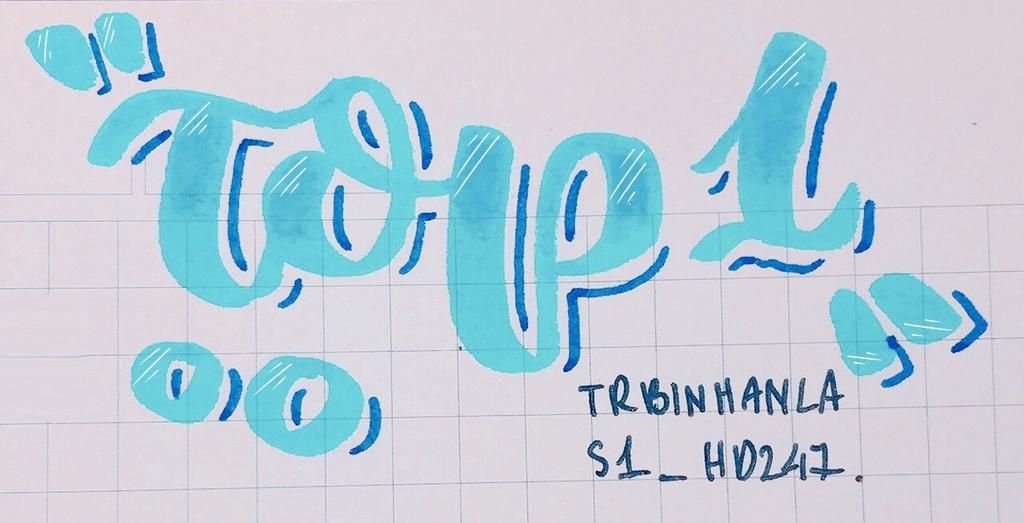 "TOP 1"
TRBINHANLA
S1_HD247.